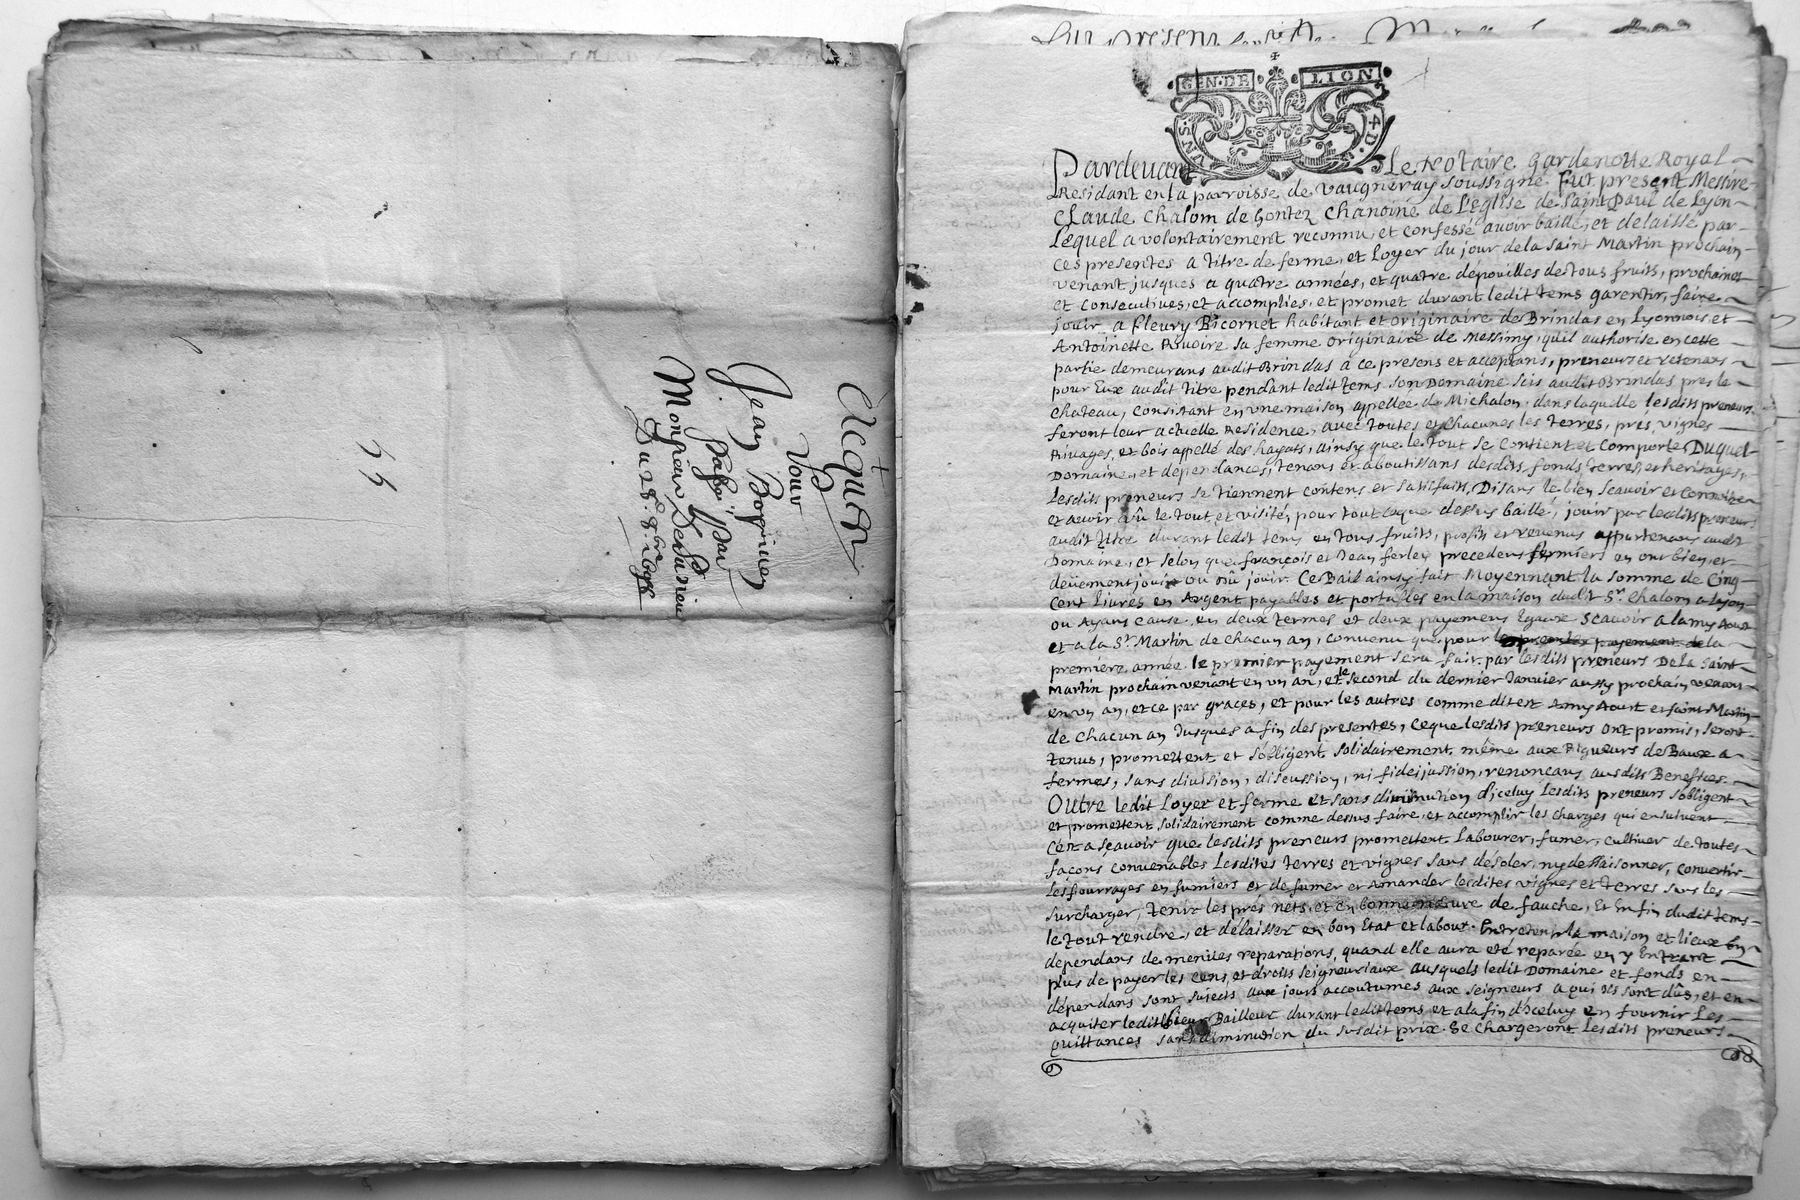 Acquit
Pour
Jean
passé par
Monsieur
Du 28e 8bre
55
GEN·DE LION
Pardevant Le Notaire gardenotte Royal
Residant en la parroisse de vaugneray soussigné fut present Messire
Claude Chalom de gontez Chanoine de L'eglise de Saint Paul de Lyon
Lequel a volontairement reconnu, et confessé avoir baillé, et delaissé par
ces presentes a titre de ferme, et Loyer du jour de la saint Martin prochain
venant jusques a quatre années, et quatre dépouilles de tous fruits, prochaines
et consecutives, et accomplies, et promet durant ledit tems garentir, faire
jouir a fleury Bicornet habitant et originaire de Brindas en Lyonnois et
Antoinette Rivoire sa femme originaire de Messimy, quil authorise en cette
partie demeurans audit Brindas a ce presens et acceptans, preneurs et retenans
pour Eux audit titre pendant ledit tems son Domaine scis audit Brindas pres le
chateau, consistant en une maison appellée de Michalon, dans laquelle lesdits preneurs
feront leur actuelle Residence, avec toutes et chacunes les terres, prés, vignes
Rivages, et bois appellé des hayats, ainsy que le tout se contient et comporte Duquel
Domaine, et dependances, tenans et aboutissans desdits fonds terres, et heritages,
Lesdits preneurs se tiennent contens et satisfaits, Disans le bien scavoir et connoitre
et avoir vû le tout et visité, pour tout ce que dessus baillé, jouir par lesdits preneurs
audit titre durant ledit tems en tous fruits, profits et revenus appartenans audit
Domaine, et selon que françois et Jean ferley precedens fermiers en ont bien, et
deüement joui ou dû jouir. Ce Bail ainsy fait Moyennant la somme de Cinq
Cent Livres en Argent payables et portables en la maison dudit Sr. Chalom a Lyon
ou Ayans cause, en deux termes et deux payemens Egaux scavoir a la my Aoust
et a la St. Martin de chacun an, convenu que pour le premier payement de la
premiere année le premier payement sera fait par lesdits preneurs De la Saint
Martin prochain venant en un an, et le second du dernier Janvier aussy prochain venant
en un an, et ce par graces, et pour les autres comme dit est Amy Aoust et saint Martin
de chacun an Jusques a fin des presentes, ce que lesdits preneurs ont promis, seront
tenus, promettent et s'obligent solidairement, même aux Rigueurs de Baux a
fermes, sans division, discussion, ni fideijussion, renoncans ausdits Benefices.
Outre ledit Loyer et ferme et sans diminution d'iceluy Lesdits preneurs s'obligent
et promettent solidairement comme dessus faire, et accomplir les charges qui ensuivent
C'est a sçavoir que lesdits preneurs promettent Labourer, fumer, cultiver de toutes
façons convenables Lesdites terres et vignes sans désoler, ny dessaisonner, convertir
Les fourrages en fumiers et de fumer et Amander lesdites vignes et terres sans les
surcharger, tenir les prés nets, et en bonne nature de fauche, Et En fin dudit tems
le tout rendre, et délaisser en bon Etat et labour. Entretenir la maison et lieux en
dependans de menües reparations, quand elle aura eté reparée en y Entrant
plus de payer les cens, et droits seigneuriaux ausquels ledit Domaine et fonds en
dépendans sont sujects aux jours accoutumes aux seigneurs a qui ils sont dûs, et en
acquiter ledit sieur Bailleur durant ledit tems et a la fin d'iceluy en fournir Les
quittances sans diminution du susdit prix. Se Chargeront Lesdits preneurs